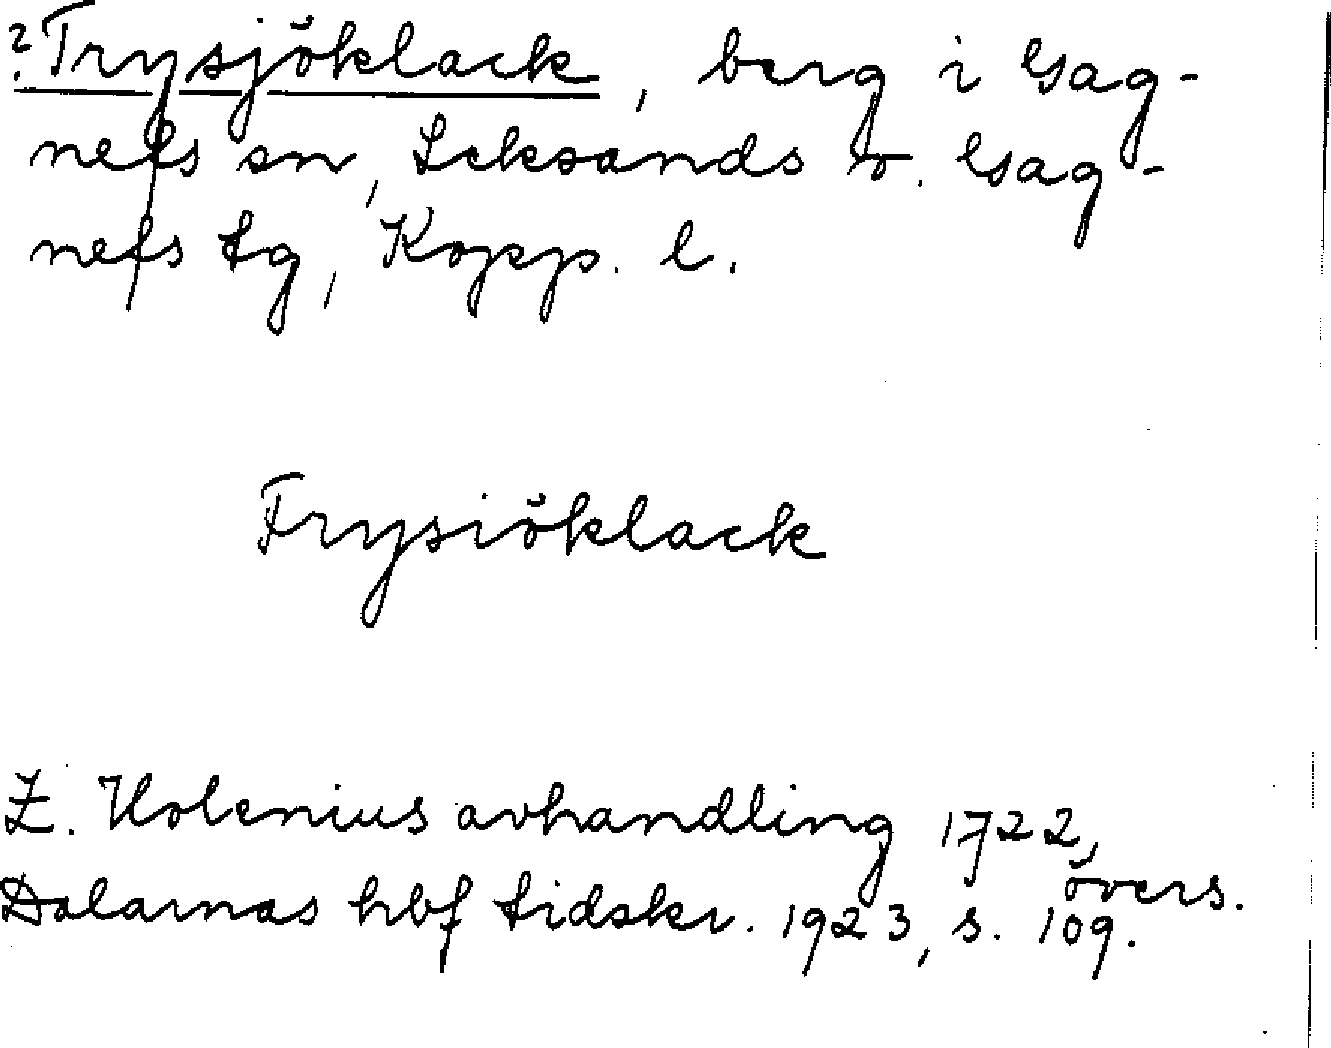 ? Trysjöklack, berg i Gag-
nefs sn, Leksands o. Gag-
nefs tg, Kopp. l.
Frysiöklack
Z. Holenius avhandling 1722,
övers.
Dalarnas hbf tidskr. 1923, s. 109.